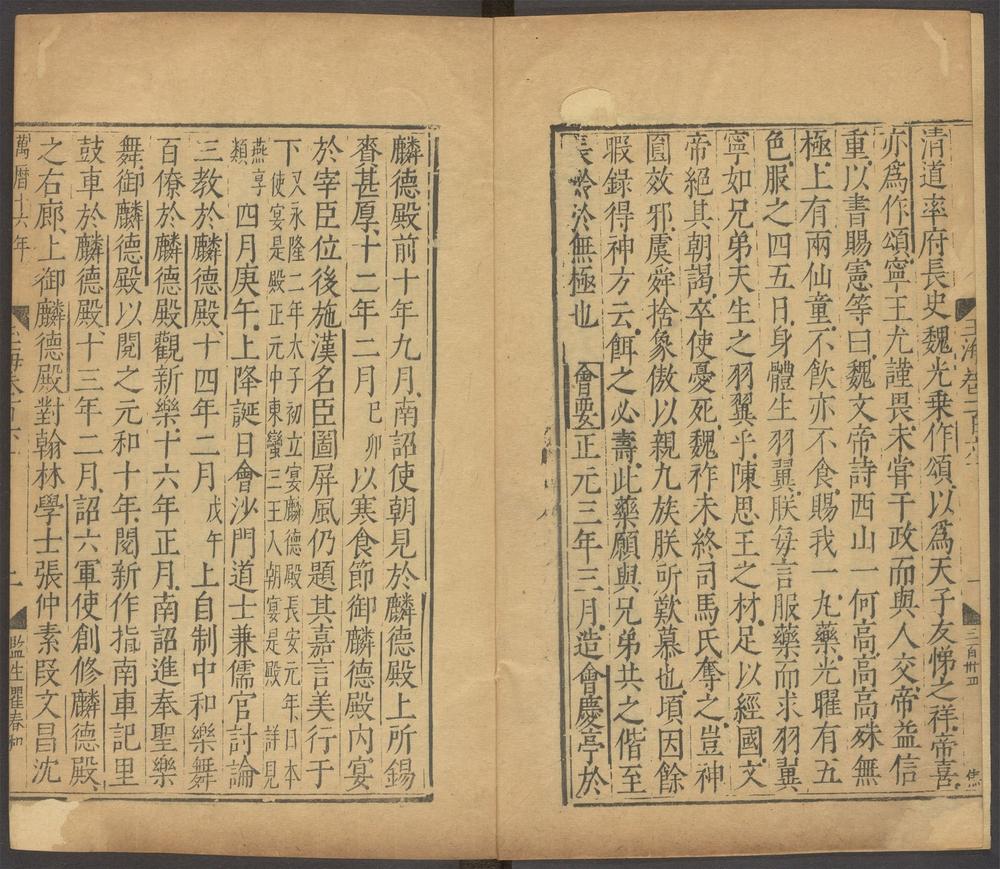 玉海卷一百六十
一
三百卌四
清道率府長史魏光乗作頌以爲天子友悌之祥帝喜
亦爲作頌寧王尤謹畏未甞干政而與人交帝益信
重以書賜憲等曰魏文帝詩西山一何高高高殊無
極上有兩仙童不飲亦不食賜我一丸藥光曜有五
色服之四五日身體生羽翼朕每言服藥而求羽翼
寧如兄弟天生之羽翼乎陳思王之材足以經國文
帝絕其朝謁卒使憂死魏祚未終司馬氏奪之豈神
圓效邪虞舜捨象傲以親九族朕所歎慕也項因餘
暇錄得神方云餌之必壽此藥願與兄弟共之偕至
長齡於無極也 會要正元三年三月造會慶亭於
麟德殿前十年九月南詔使朝見於麟德殿上所錫
賚甚厚十二年二月己卯以寒食節御麟德殿內宴
於宰臣位後施漢名臣圖屏風仍題其嘉言美行于
下又永隆二年太子初立宴麟德殿長安元年日本
使宴是殿正元仲東蠻三王入朝宴是殿 詳見
燕享
類 四月庚午上降誕日會沙門道士兼儒官討論
三教於麟德殿十四年二月戊午上自制中和樂舞
百僚於麟德殿觀新樂十六年正月南詔進奉聖樂
舞御麟德殿以閱之元和十年閱新作指南車記里
鼓車於麟德殿十三年二月詔六軍使創修麟德殿
之右廊上御麟德殿對翰林學士張仲素叚文昌沈
萬曆十六年
二
監生瞿春和